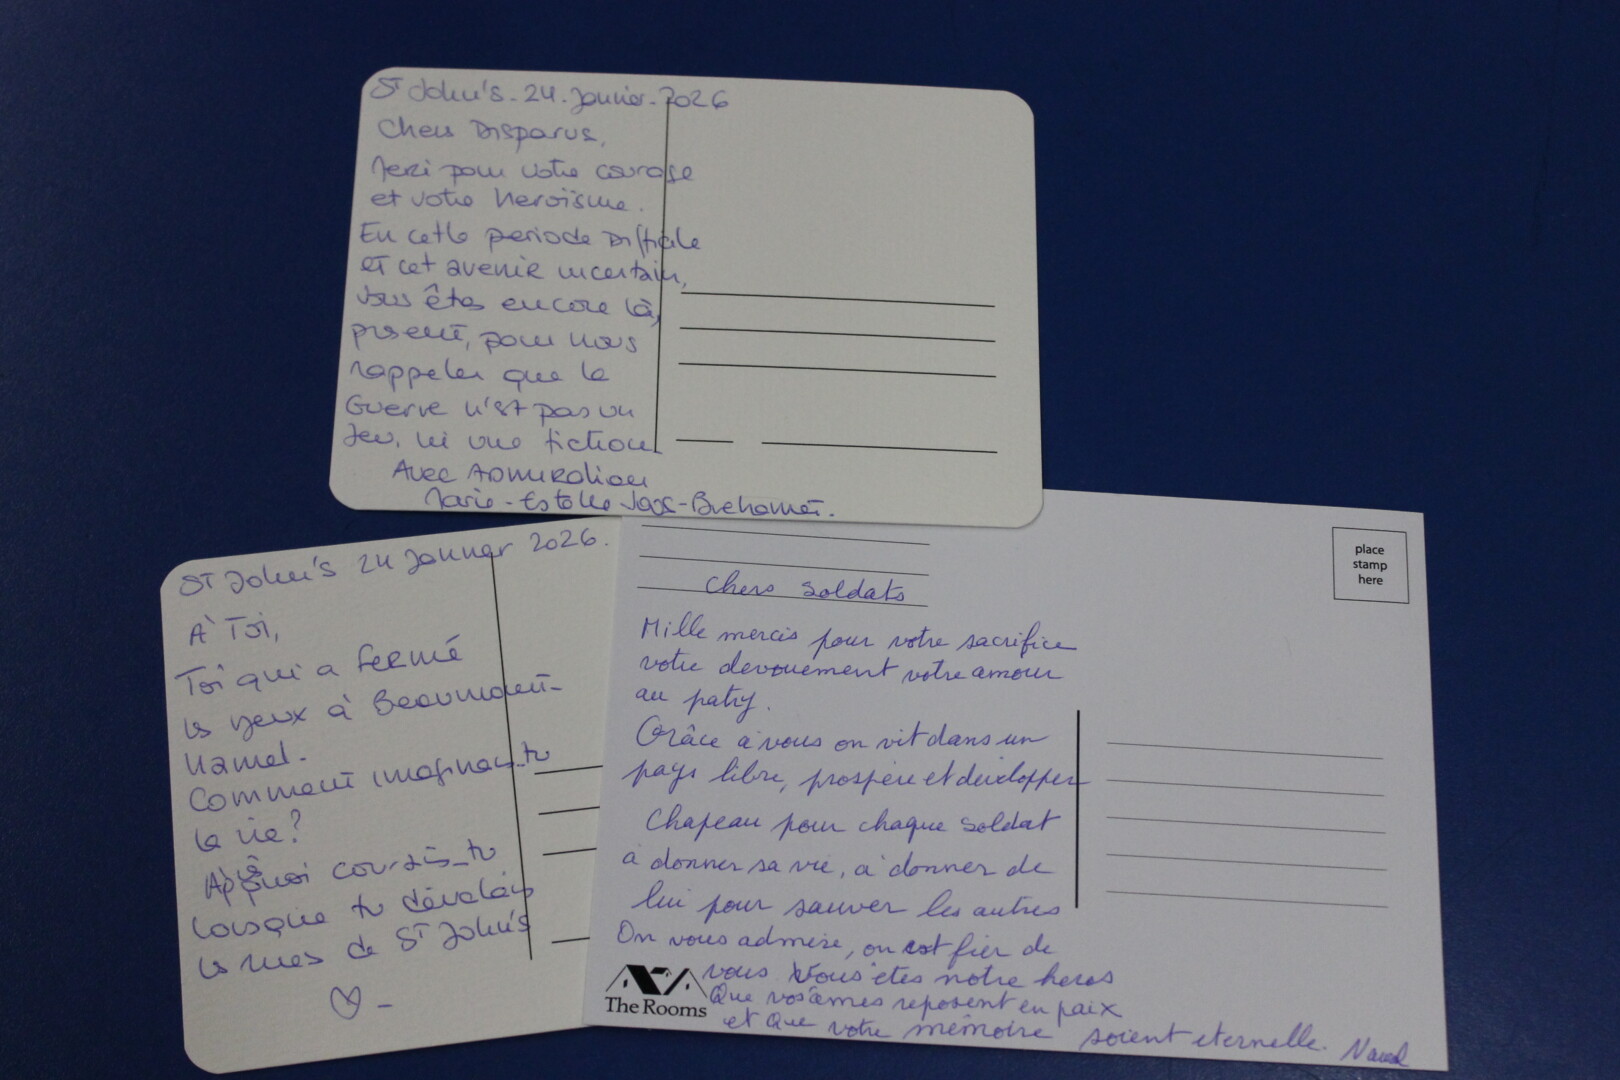 ST John's - 24. Janvier. 2026
Chers Disparus,
Merci pour votre courage
et votre heroïsme.
En cette periode Difficile
et cet avenir incertain,
vous êtes encore là,
présent, pour nous
rappeler que la
Guerre n'est pas un
Jeu, ni une fiction
Avec Admiration
Marie-Estelle
ST John's 24 Janvier 2026.
À Toi,
Toi qui a fermé
les yeux à Beaumont-
Hamel.
Comment imaginais-tu
la vie?
À quoi
Lorsque tu dévalais
les rues de ST John's
place
stamp
here
Chers soldats
Mille mercis pour votre sacrifice
votre devouement votre amour
au patry.
Grâce à vous on vit dans un
pays libre, prospère et developper
Chapeau pour chaque soldat
à donner sa vie, à donner de
lui pour sauver les autres
On vous admire, on est fier de
vous Vous êtes notre heros
Que vos âmes reposent en paix
et que votre mémoire soient eternelle.
The Rooms